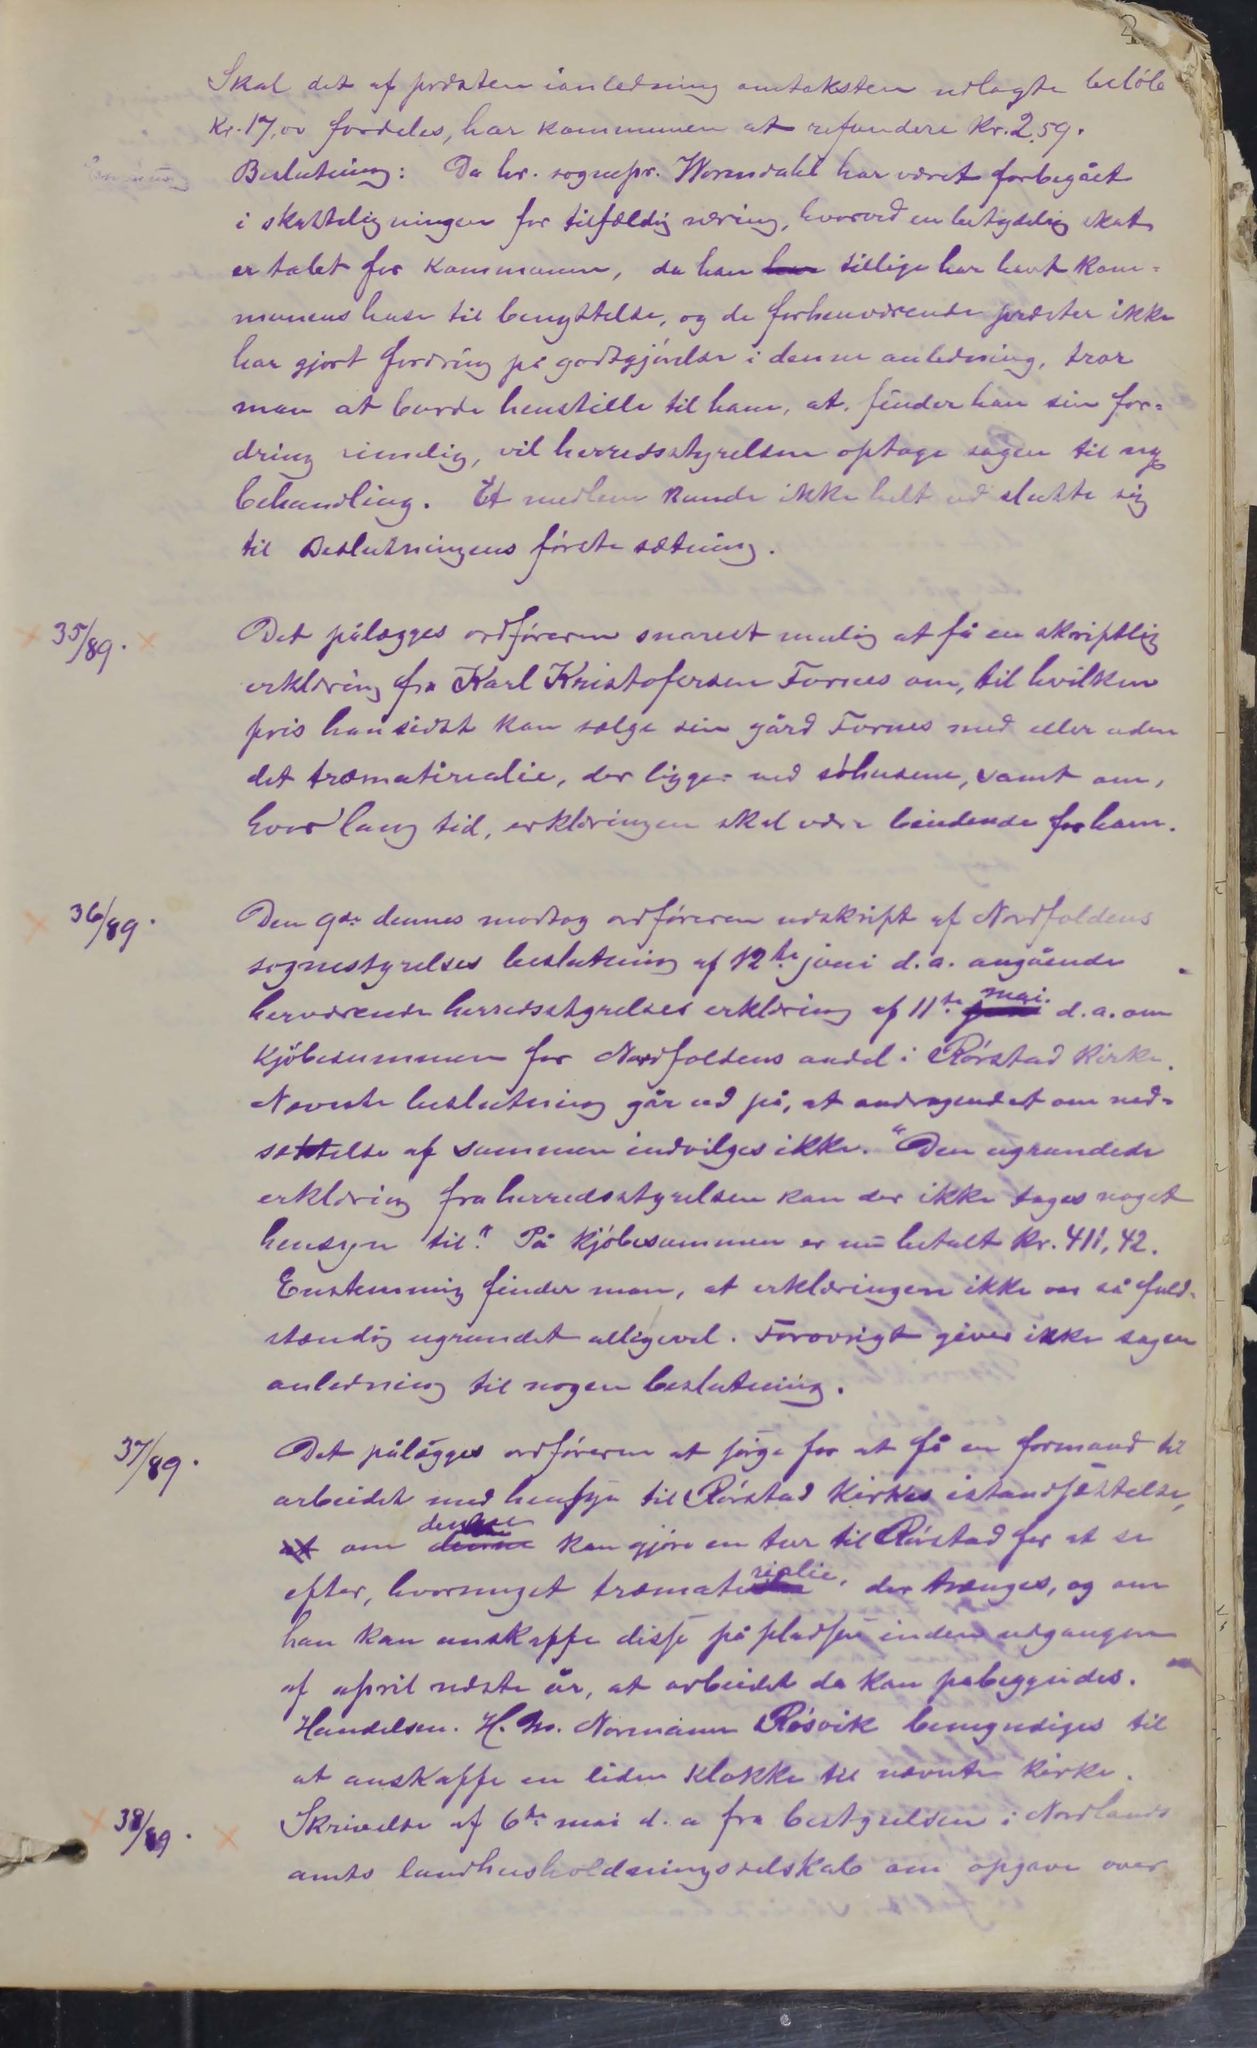 Skal det af præsten i anledning amtaksten udlagte beløb
Kr. 17,00 fordeles, har kommunen at refundere Kr. 2,59.
Beslutning: Da hr. sognepr. Wormdahl har været forbegået
i skatteligningen for tilfældig næring, hvorved en betydelig skat
er tabt for kommunen, da han har tillige har havt kom-
munens huse til benyttelse, og de forhenværende præster ikke
har gjort fordring på godtgjørelse i denne anledning, tror
man at burde henstille til ham, at, finder han sin for-
dring rimelig, vil herredsstyrelsen optage sagen til ny
behandling. Et medlem kunde ikke helt ud slutte sig
til Beslutningens første sætning.
35/89. Det pålægges ordføreren snarest mulig at få en skriftlig
erklæring fra Karl Kristofersen Fornes om, til hvilken
pris han sidst kan sælge sin gård Fornes med eller uden
det træmatirealie, der ligger ved søhusene, samt om,
hvor lang tid, erklæringen skal være bindende for ham.
36/89. Den 9de dennes modtog ordføreren udskript af Nordfoldens
sognestyrelses beslutning af 12te juni d.a. angående
herværende herredsstyrelses erklæring af 11te mai. d.a. om
Kjøbesummen for Nordfoldens andel i Rørstad Kirke.
Nævnte beslutning går ud på, at andragendet om ned-
sættelse af summen indvilges ikke. "Den ugrundede
erklæring fra herredsstyrelsen kan der ikke tages noget
hensyn til." På Kjøbesummen er nu betalt Kr. 411,42.
Enstemmig finder man, at erklæringen ikke var så fuld-
stændig ugrundet alligevel. Forøvrigt giver ikke sagen
anledning til nogen beslutning.
37/89. Det pålægges ordføreren at sørge for at få en formand til
arbeidet med hensyn til Rørstad Kirkes istandsættelse,
at om denne kan gjøre en tur til Rørstad for at se
efter, hvormeget træmaterialie, der trænges, og om
han kan anskaffe disse på pladsen inden udgangen
af april næste år, at arbeidet da kan påbegyndes.
Handelsm. H. M. Normann Røsvik bemyndiges til
at anskaffe en liden Klokke til nævnte Kirke.
38/89. Skrivelse af 6te mai d. a fra bestyrelsen i Nordlands
amts landhusholdningsselskab om opgave over